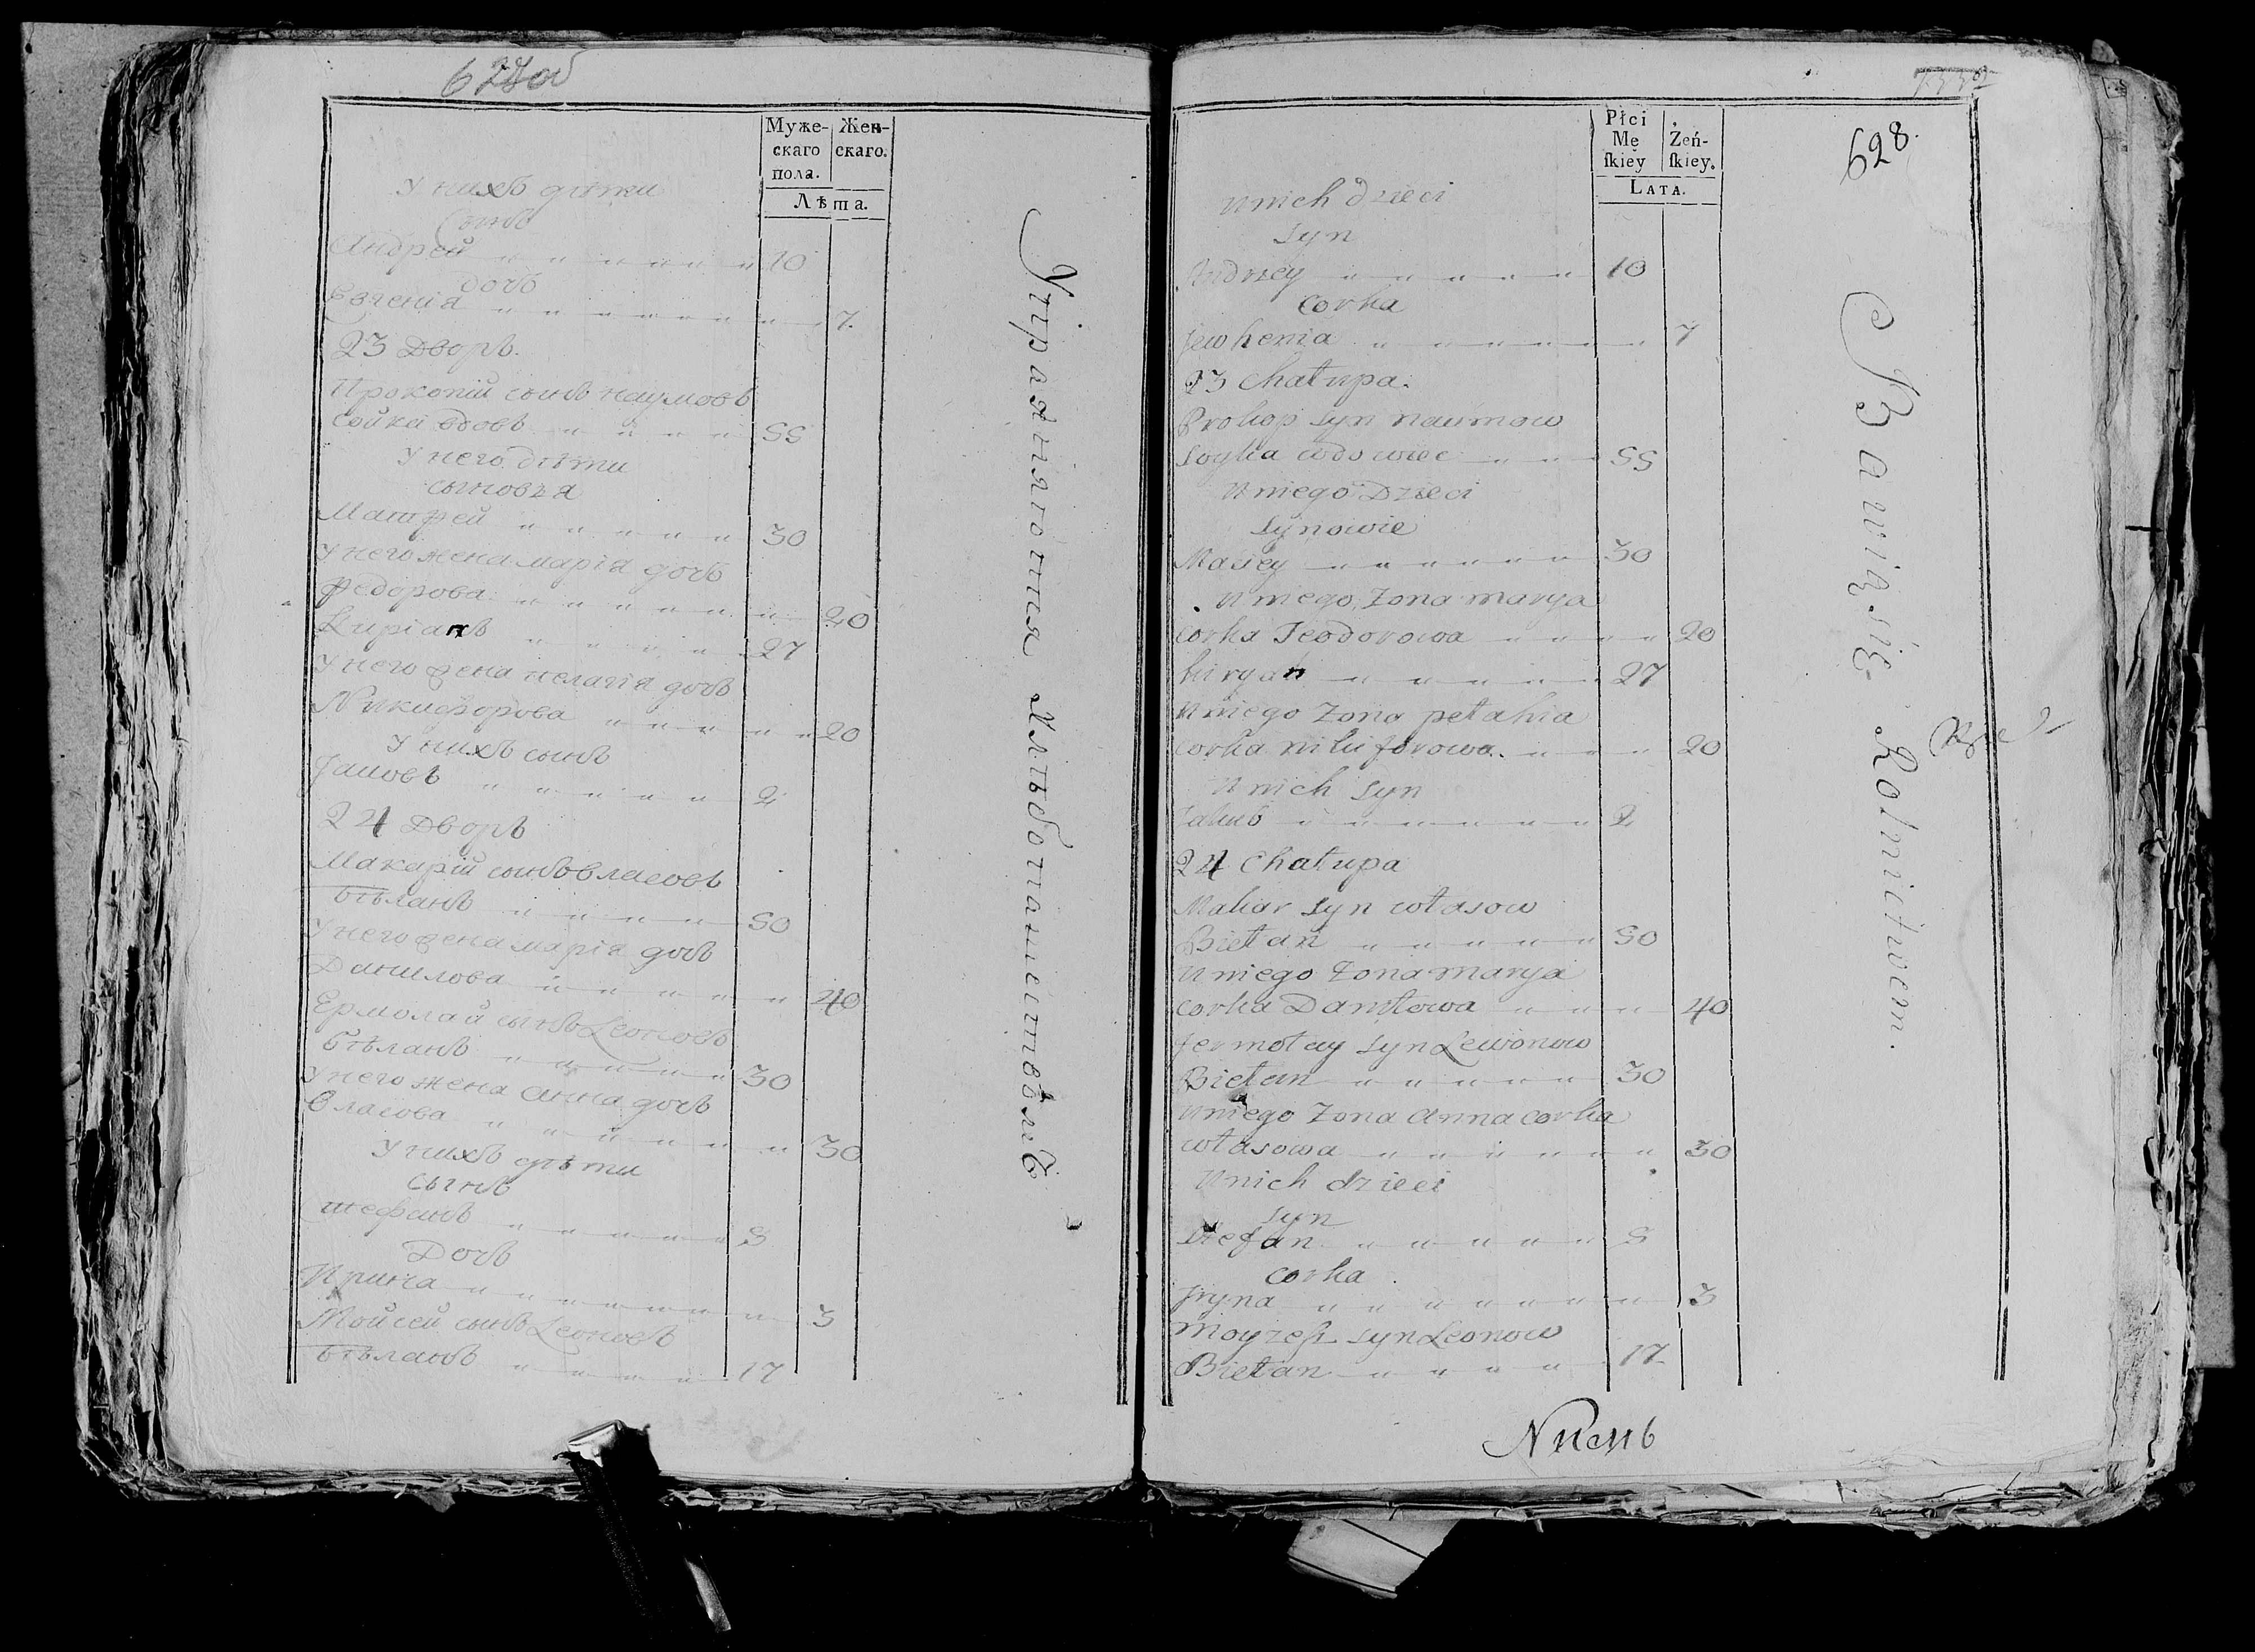 Муже-
скаго
пола.
Жен-
скаго.
Лѣта.
У нихъ дѣти
Сынъ
Андрей 10
дочь
Евгенія 7.
23 Дворъ.
Прокопій сынъ наумовъ
Сойка вдовъ 55
У него дѣти
сыновья
Матфей 30
У него жена марія дочь
Федорова 20
Киріанъ 27
У него жена пелагія дочь
Никифорова 20
У нихъ сынъ
Іаковъ 2
24 Дворъ
Макарій сынъ власовъ
Бѣланъ 50
У него жена марія дочь
Данилова 40
Ермолай сынъ Леоновъ
Бѣланъ 30
У него жена анна дочь
Власова 30
У нихъ дѣти
Сынъ
Стефанъ 5
Дочь
Ирина 3
Мойсей сынъ Леоновъ
Бѣланъ 17
Упражняются Хлѣбопашествомъ
Płci
Mę
ſkiey
Żeń-
ſkiey.
LATA.
628.
U nich dzieci
Syn
Andrzey 10
Corka
Jewhenia 7
23 Chałupa.
Prokop Syn naumow
Soyka wdowiec 55
U niego Dzieci
Synowie
Maciey 30
U niego Żona marya
corka Teodorowa 20
kiryan 27
U niego Żona pełahia
corka nikiforowa 20
U nich Syn
Jakub 2
24 Chałupa
Makar Syn własow
Biełan 50
U niego Żona marya
corka Daniłowa 40
Jermołay Syn Lewonow
Biełan 30
U niego Żona anna corka
własowa 30
U nich dzieci
Syn
Stefan 5
Corka
Jryna 3
Moyzesz Syn Leonow
Biełan 17
Bawią się Rolnictwem.